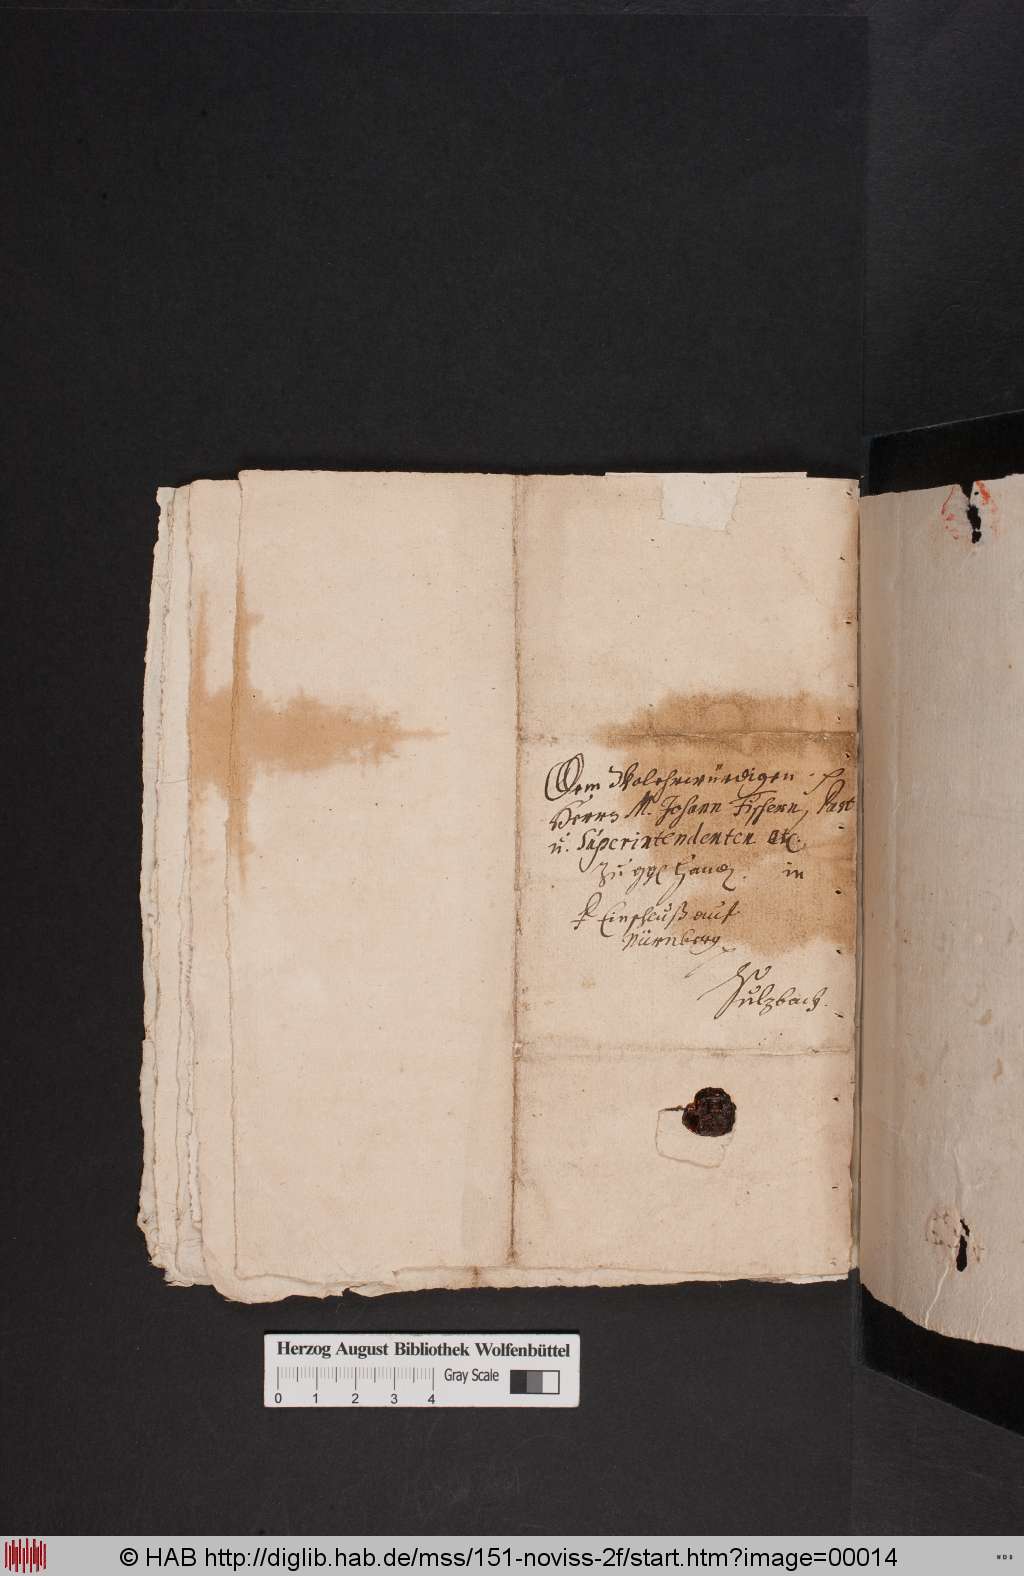 Dem Wolehrwürdigen
Herrn M. Johann Fischern, Past
u. Superintendenten etc.
Zu in
Einschluß auf
Nürnberg
Sulzbach.
Herzog August Bibliothek Wolfenbüttel
Gray Scale
0 1 2 3 4
© HAB http://diglib.hab.de/mss/151-noviss-2f/start.htm?image=00014